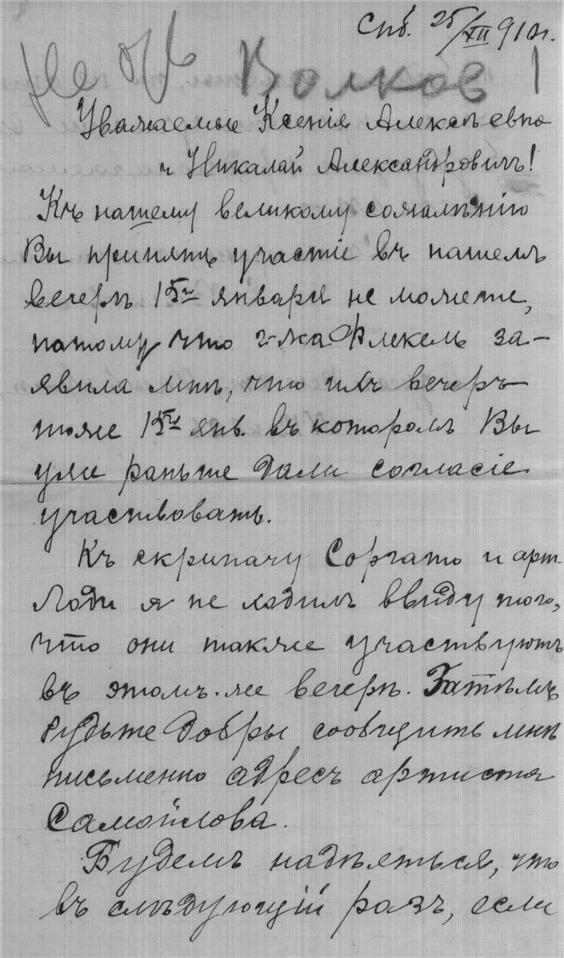 Спб. 25/XII 910 г.
Не
Волков
Уважаемые Ксенія Алексѣевна
и Николай Александровичъ!
Къ нашему великому сожалѣнію
Вы принять участіе въ нашемъ
вечерѣ 15го января не можете,
потому что г-жа Флекель за-
явила мнѣ, что ихъ вечеръ
тоже 15го янв. въ которомъ Вы
уже раньше дали согласіе
участвовать.
Къ скрипачу и арт.
Лоди я не ходилъ ввиду того,
что они также участвуютъ
въ этомъ-же вечерѣ. Затѣмъ
будьте добры сообщить мнѣ
письменно адресъ артиста
Самойлова.
Будемъ надѣяться, что
въ слѣдующій разъ, если